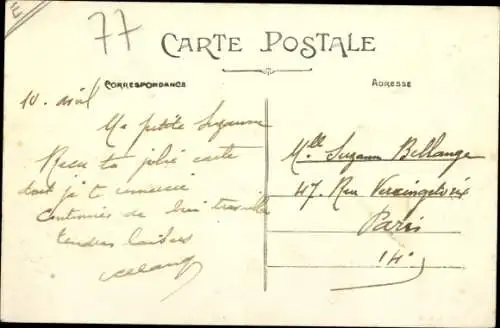 E
77
CARTE POSTALE
CORRESPONDANCE
ADRESSE
10. avril
Ma petite Suzanne
Recu ta jolie carte
dont je te remercie
Continues de bien travailler
tendres baisers
Mlle Suzann Bellange
47. Rue Vercingetorix
Paris
14e